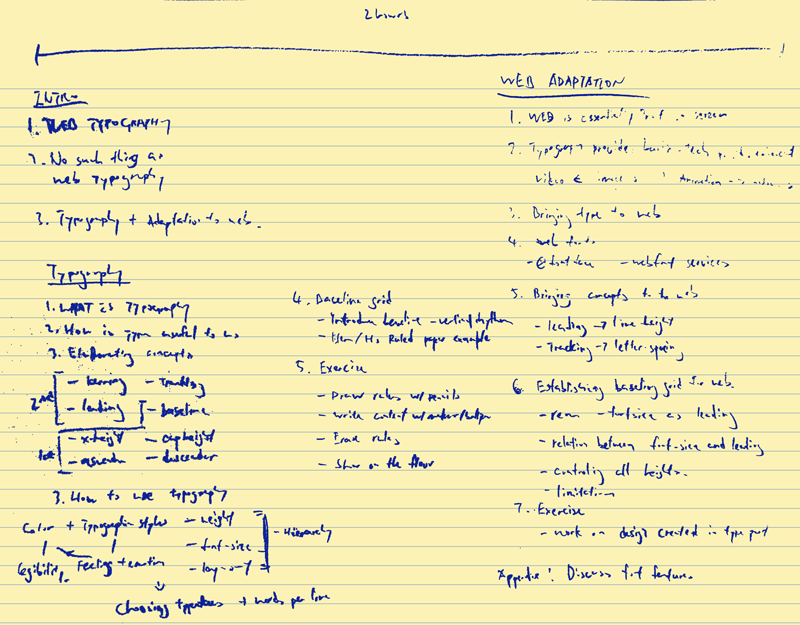 2 hours
INTRO
1. WEB TYPOGRAPHY
2. No such thing as
web typography
3. Typography + Adaptation to web.
Typography
1. WHAT IS Typography
2. How is Type useful to us
3. Elaborating concepts
2nd
- kerning - Tracking
- leading - baseline
1st
- x-height - cap height
- ascender - descender
3. How to use typography
Color + Typographic styles
- weight
- font-size
- Hierarchy
Legibility. Feeling + emotion
Choosing typefaces + words per line
4. Baseline grid
- Introduce baseline - vertical rhythm
- Ruled paper example
5. Exercise
- Draw rules w/ pencils
- Write content w/
- Erase rules
- Show on the floor
WEB ADAPTATION
1. WEB is essentially on screen
2. Typography provide
video & images Animation
3. Bringing type to web
4. web fonts
- @fontface - webfont services
5. Bringing concepts to the web
- leading → line height
- Tracking → letter-spacing
6. Establishing baseline grid for web.
- rem - font size as leading
- relation between font-size and leading
- controlling all heights.
- limitation
7. Exercise
- work on design created in type part
Appendix: Discuss font feature.